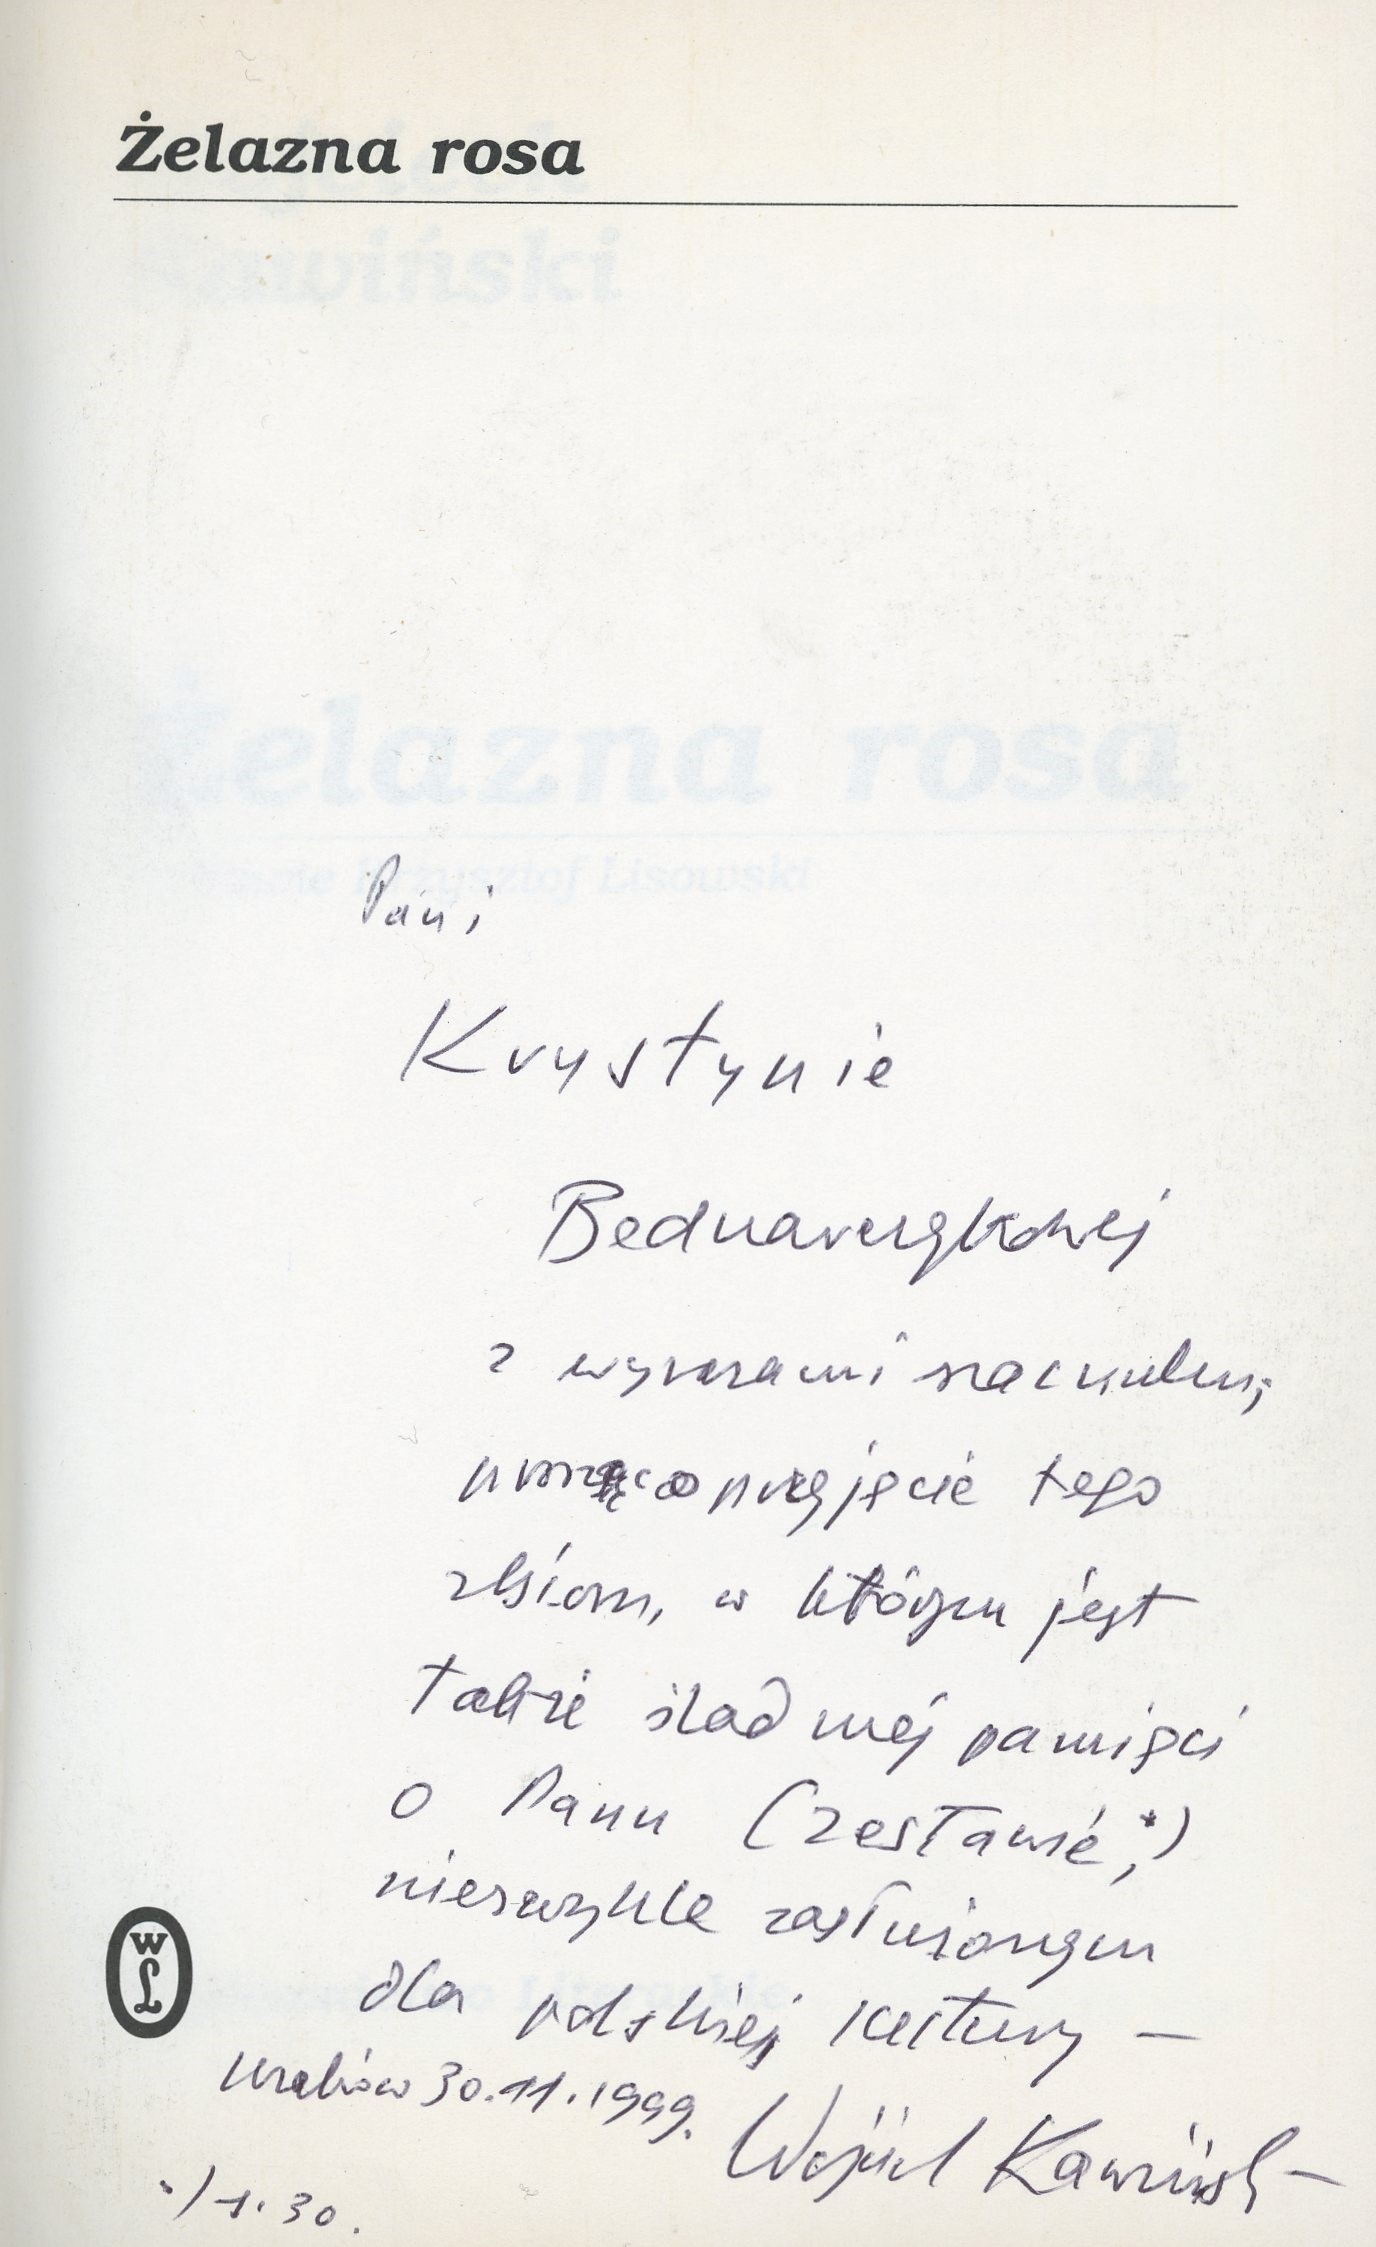 Żelazna rosa
Pani
Krystynie
Bednarczykowej
z wyrazami szacunku,
prosząc o przyjęcie tego
zbioru, w którym jest
także ślad mej pamięci
o Panu Czesławie,*)
niezwykle zasłużonym
dla polskiej kultury –
Kraków 30.11.1999.
Wojciech Kawiński
*) s. 30.
WL